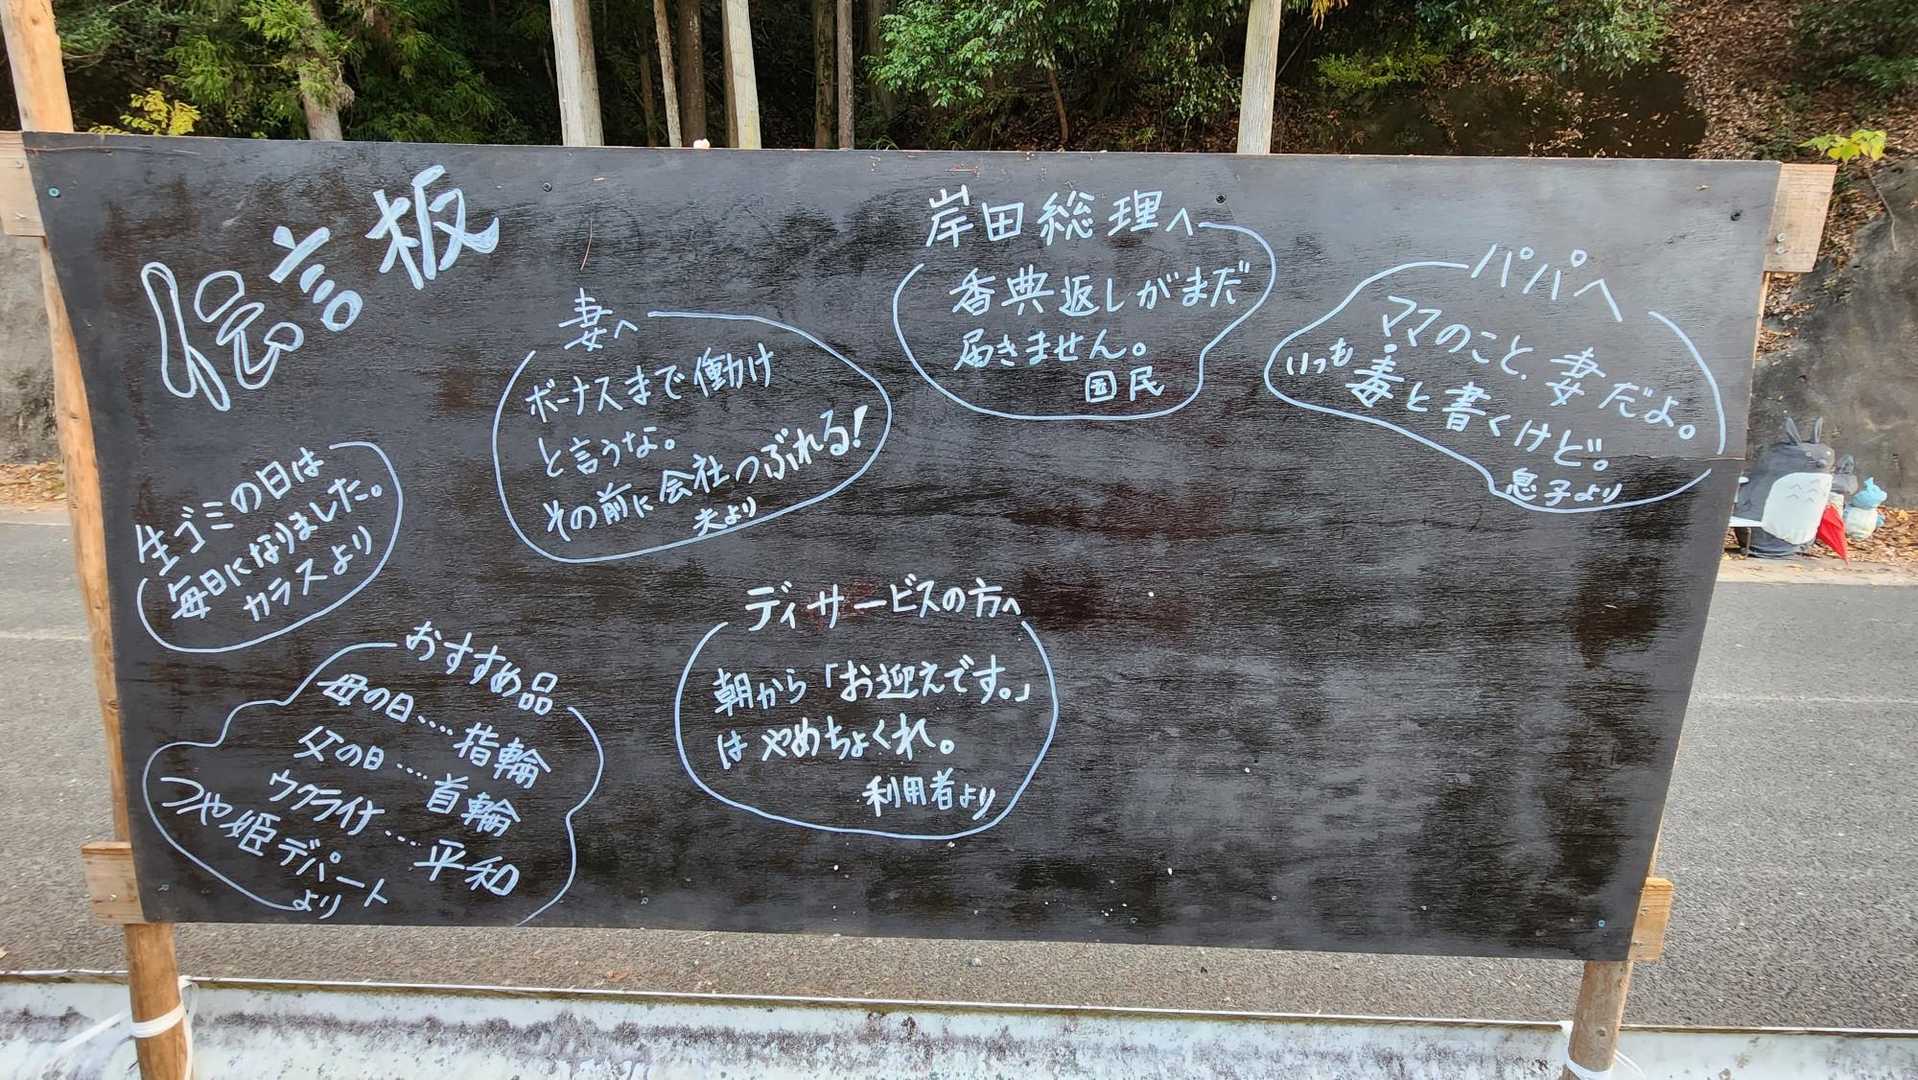 伝言板
生ゴミの日は
毎日になりました。
カラスより
おすすめ品
母の日‥‥指輪
父の日‥‥首輪
ウクライナ‥‥平和
つや姫デパート
より
妻へ
ボーナスまで働け
と言うな。
その前に会社つぶれる!
夫より
ディサービスの方へ
朝から「お迎えです。」
はやめちょくれ。
利用者より
岸田総理へ
香典返しがまだ
届きません。
国民
パパへ
ママのこと、妻だよ。
いつも毒と書くけど。
息子より